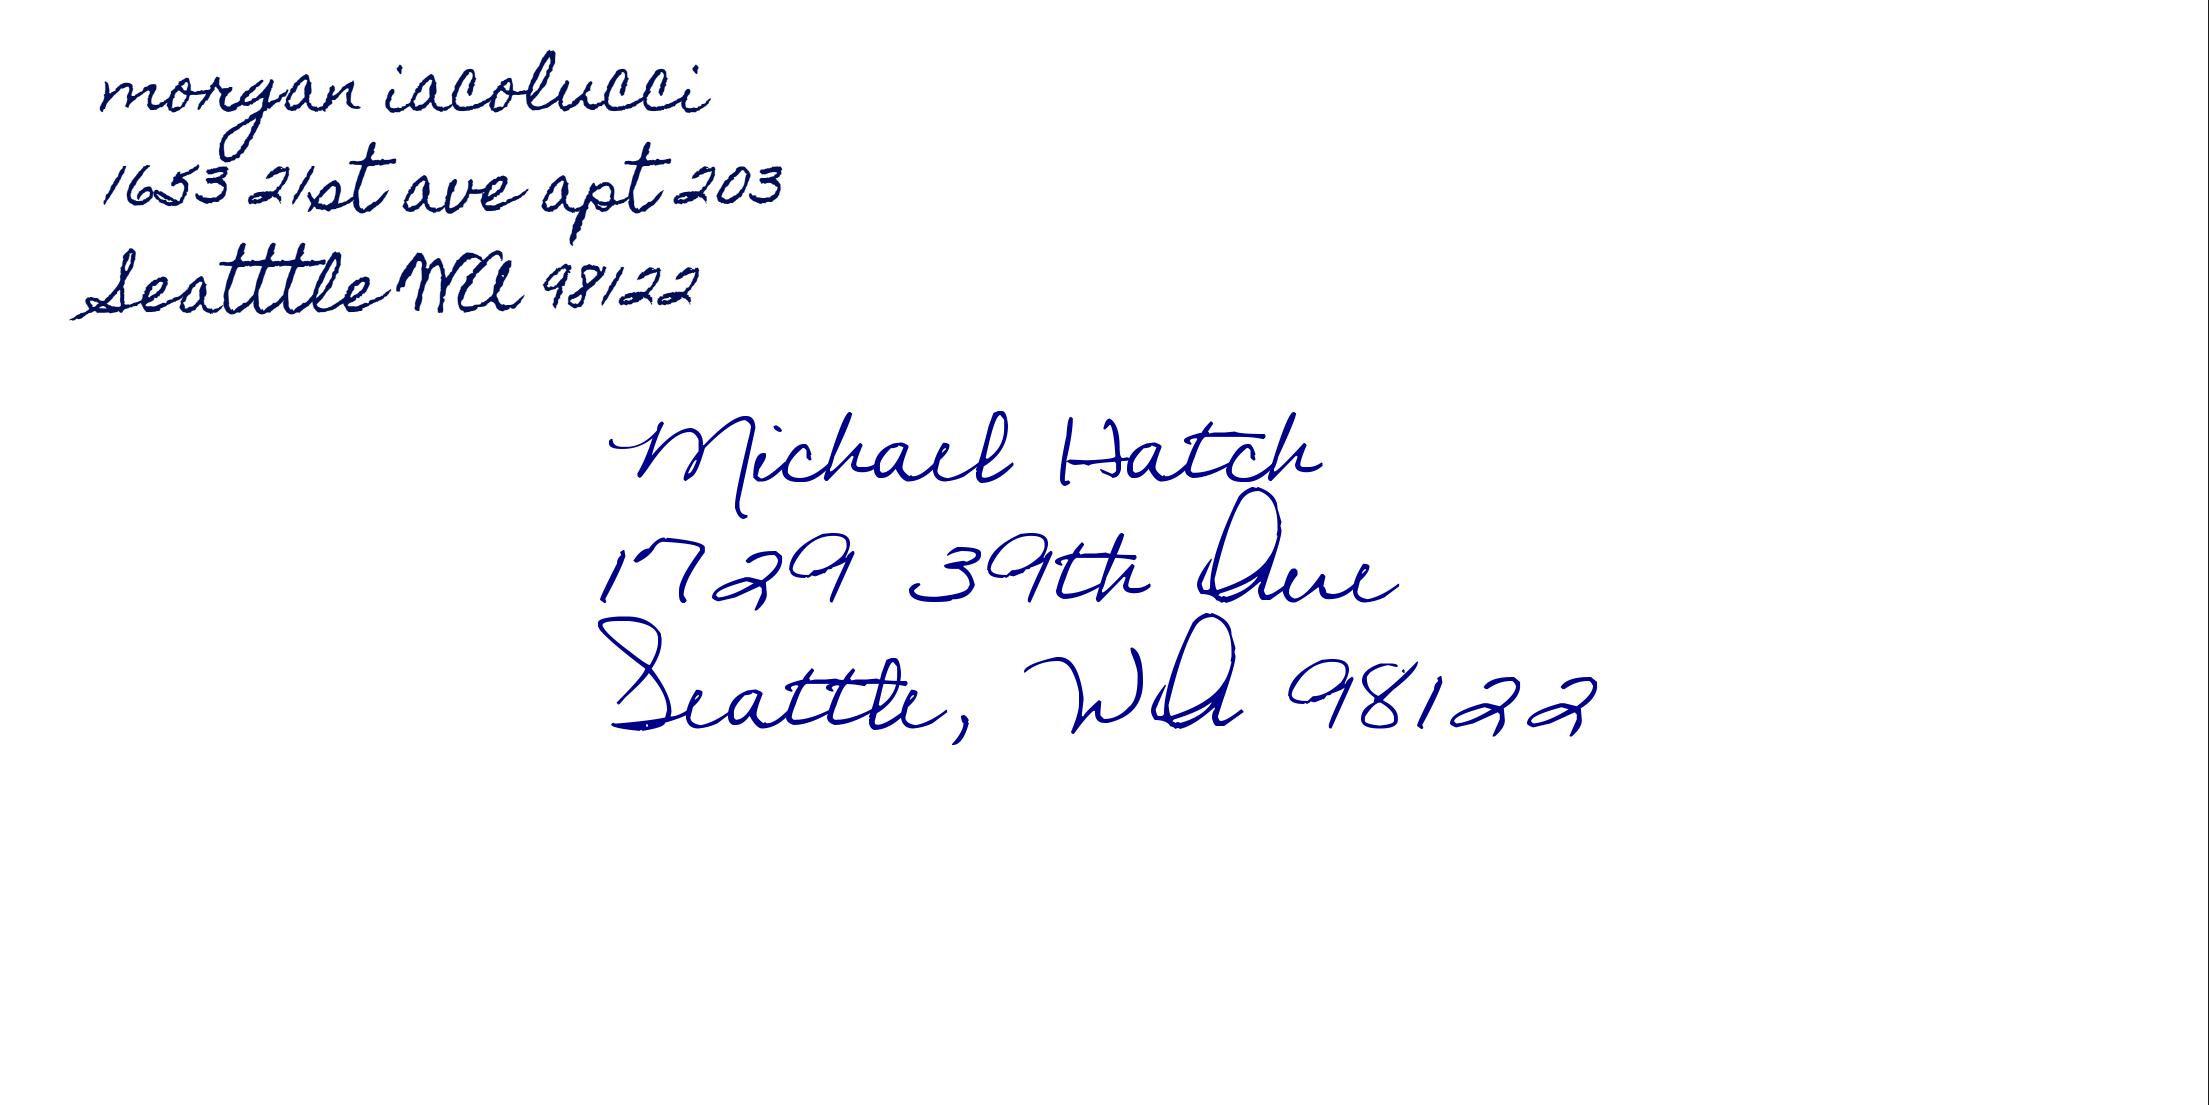 morgan iacolucci
1653 21st ave apt 203
Seatttle WA 98122
Michael Hatch
1729 39th Ave
Seattle, WA 98122